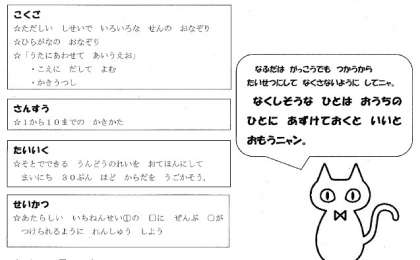 こくご
☆ただしい しせいで いろいろな せんの おなぞり
☆ひらがなの おなぞり
☆「うたにあわせて あいうえお」
・こえに だして よむ
・かきうつし
さんすう
☆１から１０までの かきかた
たいいく
☆そとでできる うんどうのれいを おてほんにして
まいにち ３０ぷん ほど からだを うごかそう。
せいかつ
☆あたらしい いちねんせい①の □に ぜんぶ ○が
つけられるように れんしゅう しよう
なふだは がっこうでも つかうから
たいせつにして なくさないように してニャ。
なくしそうな ひとは おうちの
ひとに あずけておくと いいと
おもうニャン。